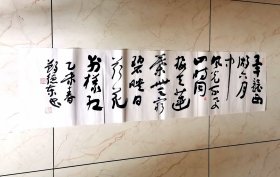 毕竟西
湖六月
中
风光不与
四时同
接天莲
葉無穷
碧映日
荷花
别样红
乙未春